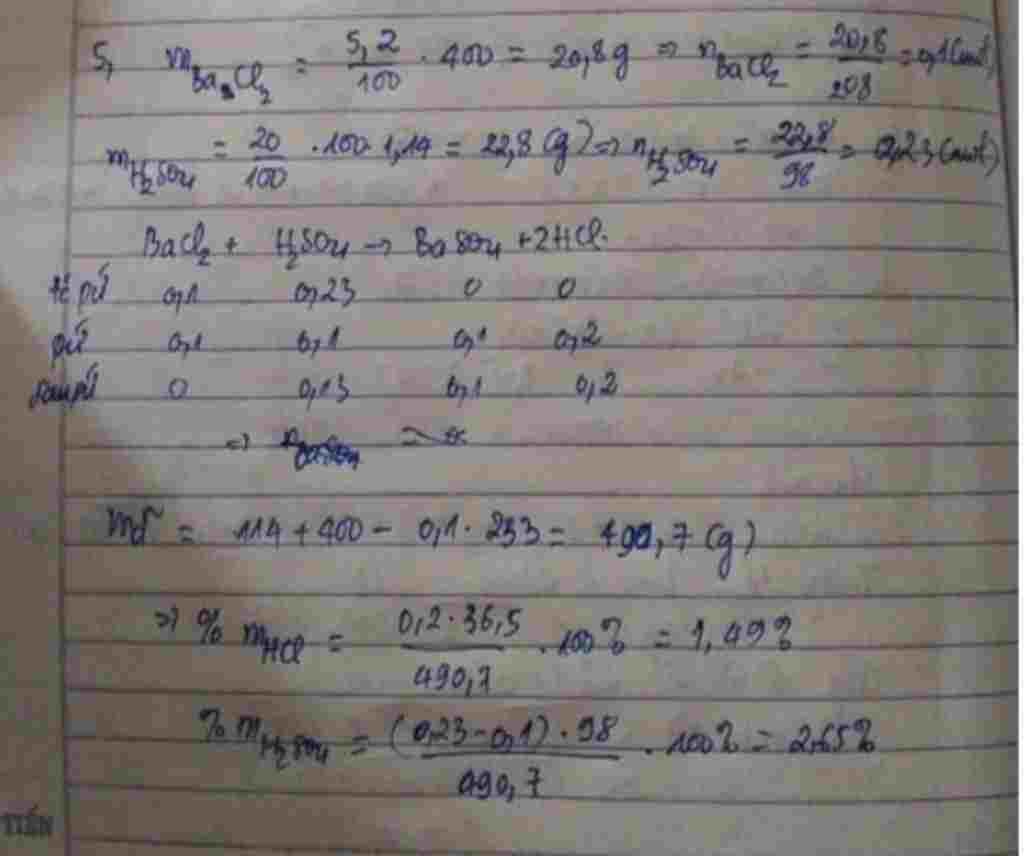 5, mBaCl₂ = 5,2/100 · 400 = 20,8g ⇒ nBaCl₂ = 20,8/208 = 0,1(mol)
mH₂SO₄ = 20/100 · 100 · 1,14 = 22,8(g) ⇒ nH₂SO₄ = 22,8/98 = 0,23(mol)
BaCl₂ + H₂SO₄ → BaSO₄ + 2HCl.
pứ 0,1 0,23 0 0
pứ 0,1 0,1 0,1 0,2
sau pứ 0 0,13 0,1 0,2
⇒
= 114 + 400 - 0,1 · 233 = 490,7(g)
⇒ % mHCl = 0,2 · 36,5/490,7 · 100% = 1,49%
% mH₂SO₄ = (0,23 - 0,1) · 98/490,7 · 100% = 2,65%
TIẾN